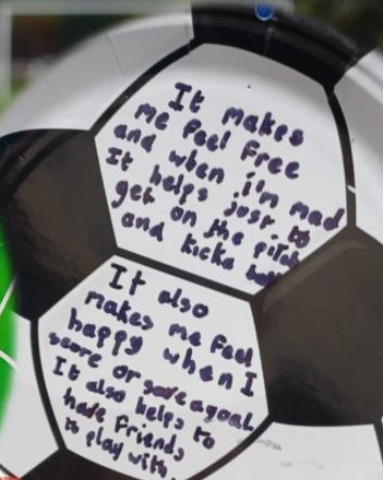 It makes
me feel free
and when i'm mad
It helps just to
get on the pitch
and kick a ball
It also
makes me feel
happy when I
score or save a goal
It also helps to
have friends
to play with.